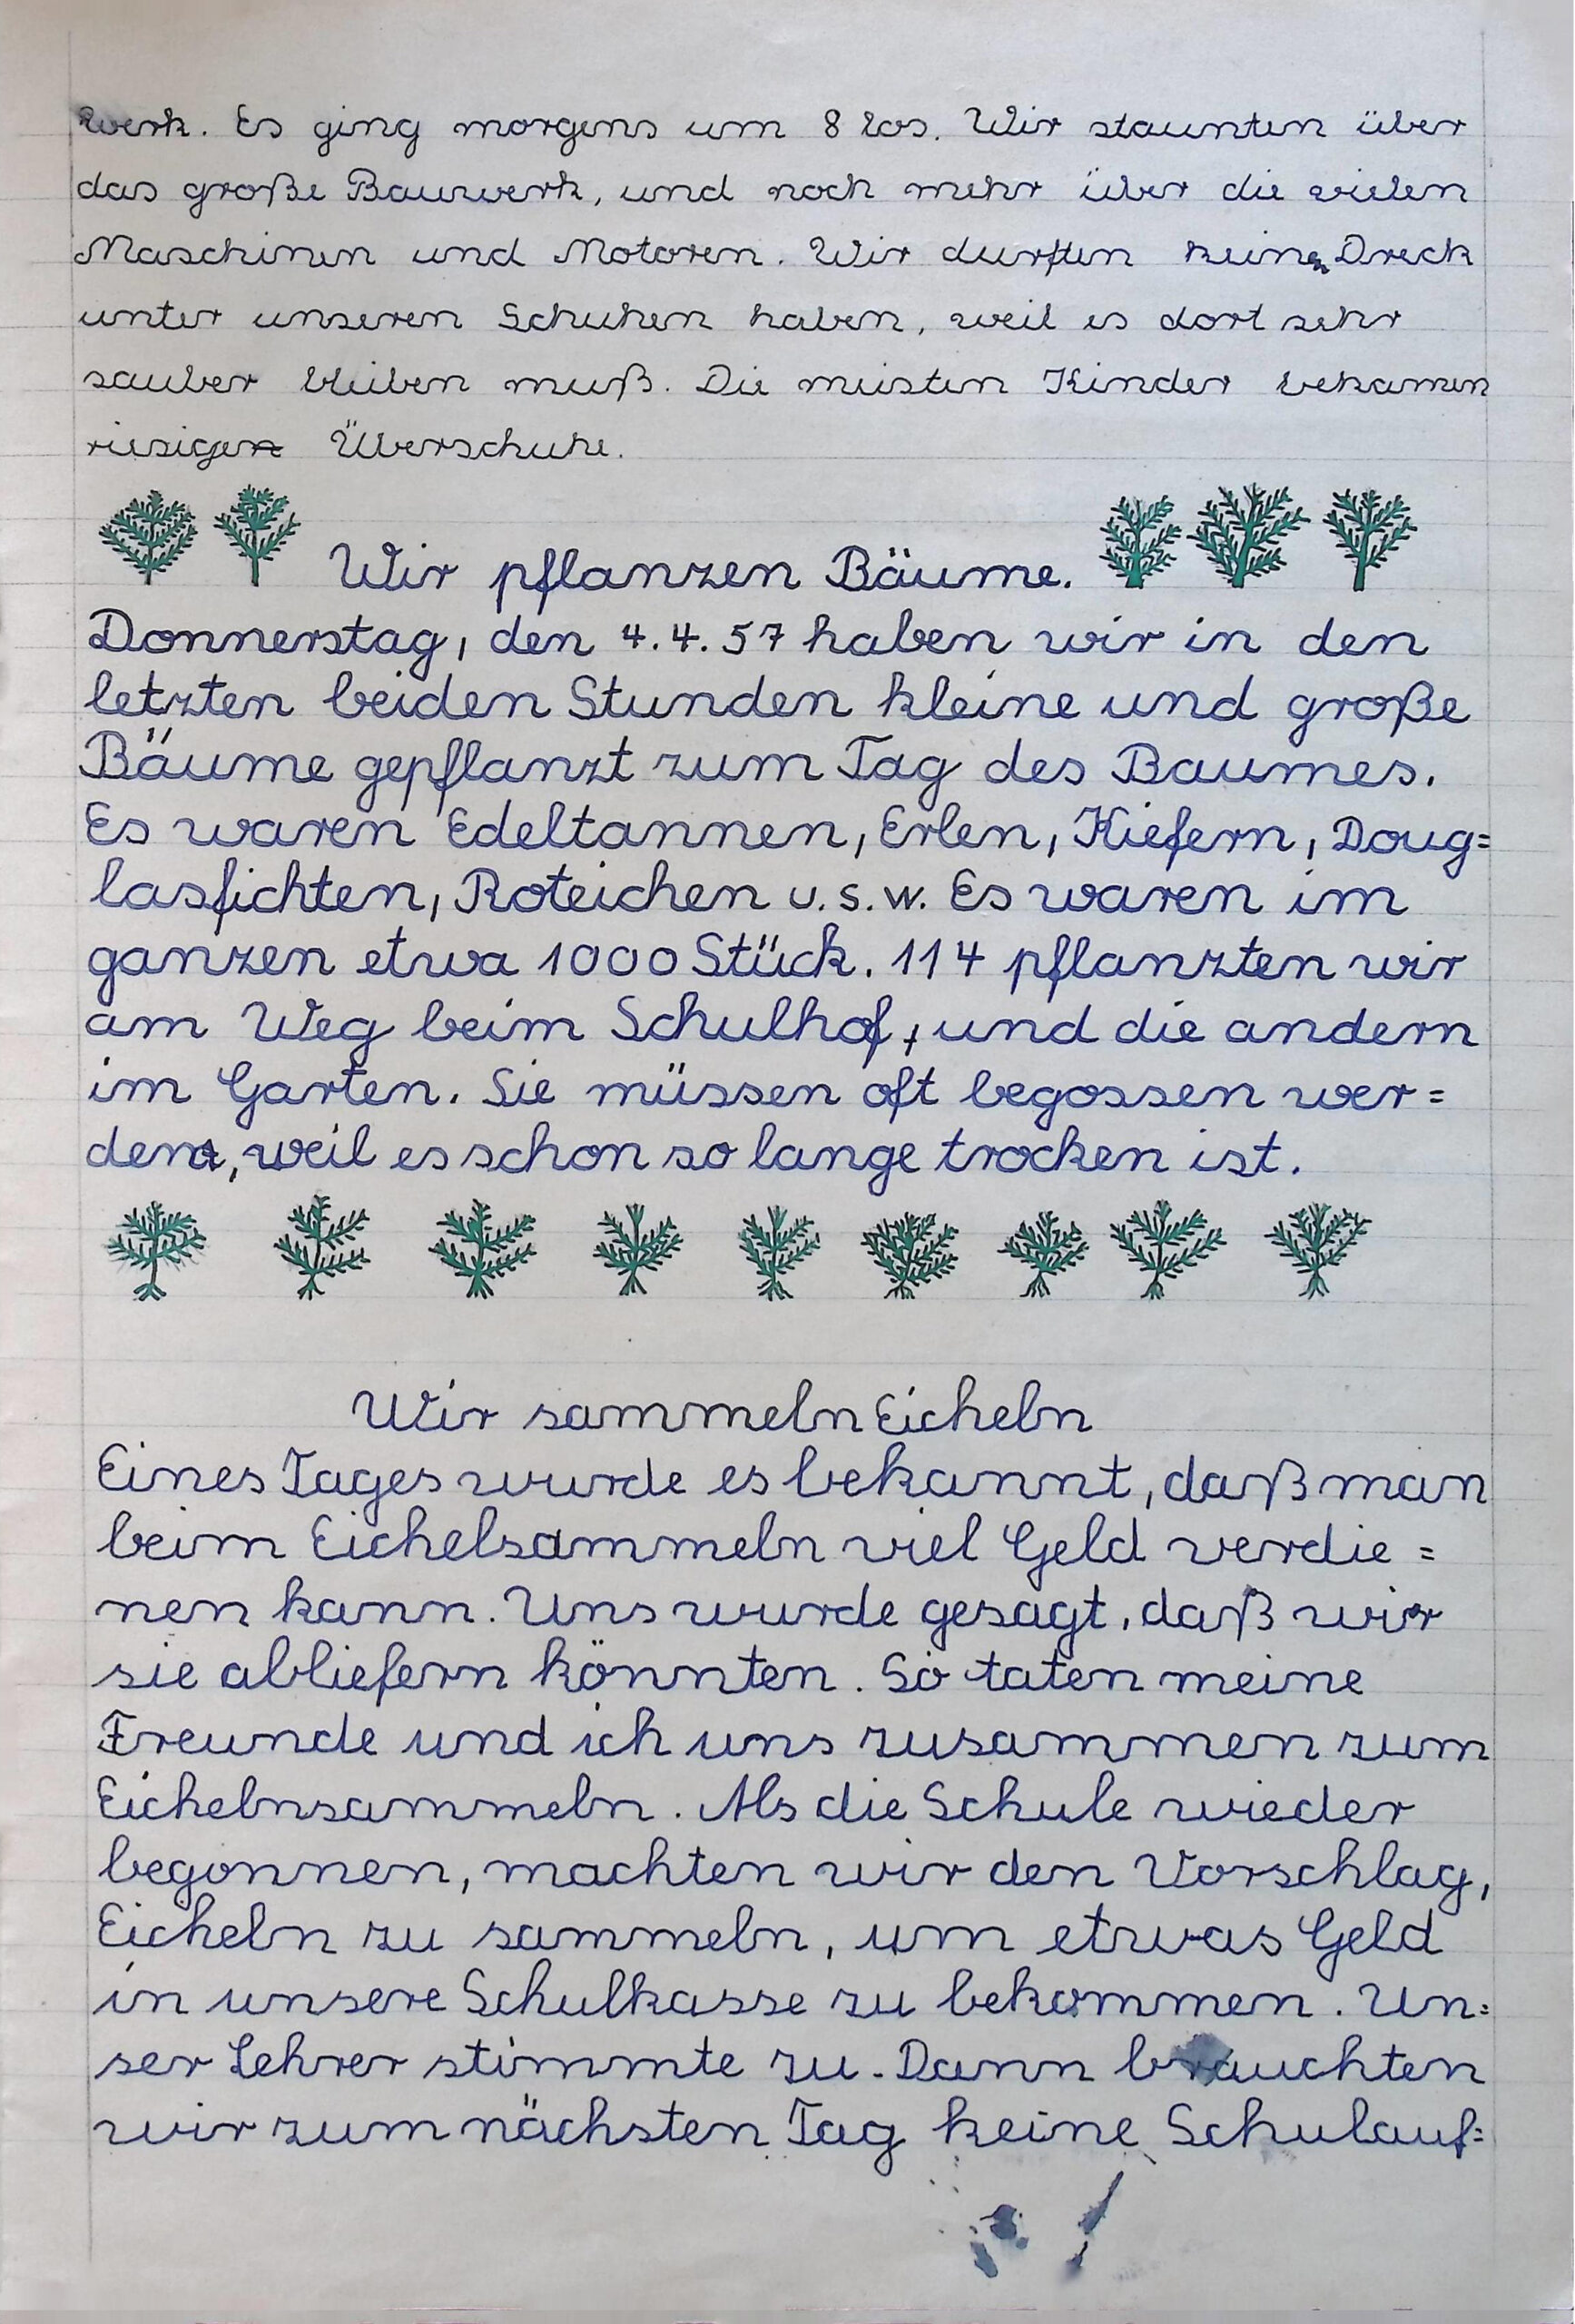 werk. Es ging morgens um 8 los. Wir staunten über
das große Bauwerk, und noch mehr über die vielen
Maschinen und Motoren. Wir durften keinen Dreck
unter unseren Schuhen haben, weil es dort sehr
sauber bleiben muß. Die meisten Kinder bekamen
riesige Überschuhe.
Wir pflanzen Bäume.
Donnerstag, den 4.4.57 haben wir in den
letzten beiden Stunden kleine und große
Bäume gepflanzt zum Tag des Baumes.
Es waren Edeltannen, Erlen, Kiefern, Doug=
lasfichten, Roteichen u.s.w. Es waren im
ganzen etwa 1000 Stück. 114 pflanzten wir
am Weg beim Schulhof, und die andern
im Garten. Sie müssen oft begossen wer=
den, weil es schon so lange trocken ist.
Wir sammeln Eicheln
Eines Tages wurde es bekannt, daß man
beim Eichelsammeln viel Geld verdie=
nen kann. Uns wurde gesagt, daß wir
sie abliefern könnten. So taten meine
Freunde und ich uns zusammen zum
Eichelnsammeln. Als die Schule wieder
begonnen, machten wir den Vorschlag,
Eicheln zu sammeln, um etwas Geld
in unsere Schulkasse zu bekommen. Un=
ser Lehrer stimmte zu. Dann brauchten
wir zum nächsten Tag keine Schulauf=